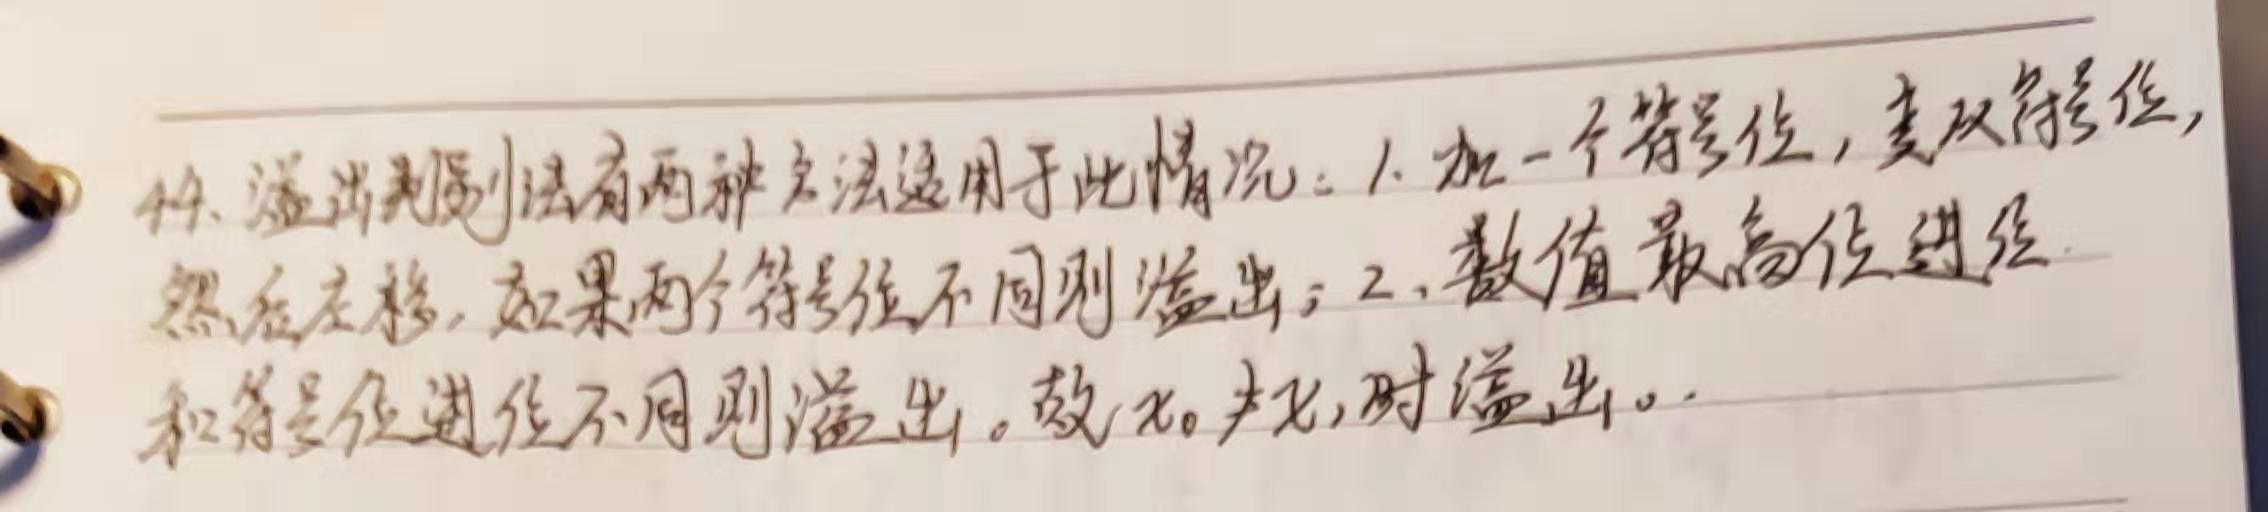 44.溢出判别法有两种方法适用于此情况：1.加一个符号位，变双符号位，
然后左移，如果两个符号位不同则溢出；2、数值最高位进位
和符号位进位不同则溢出。故x₀≠x₁时溢出。